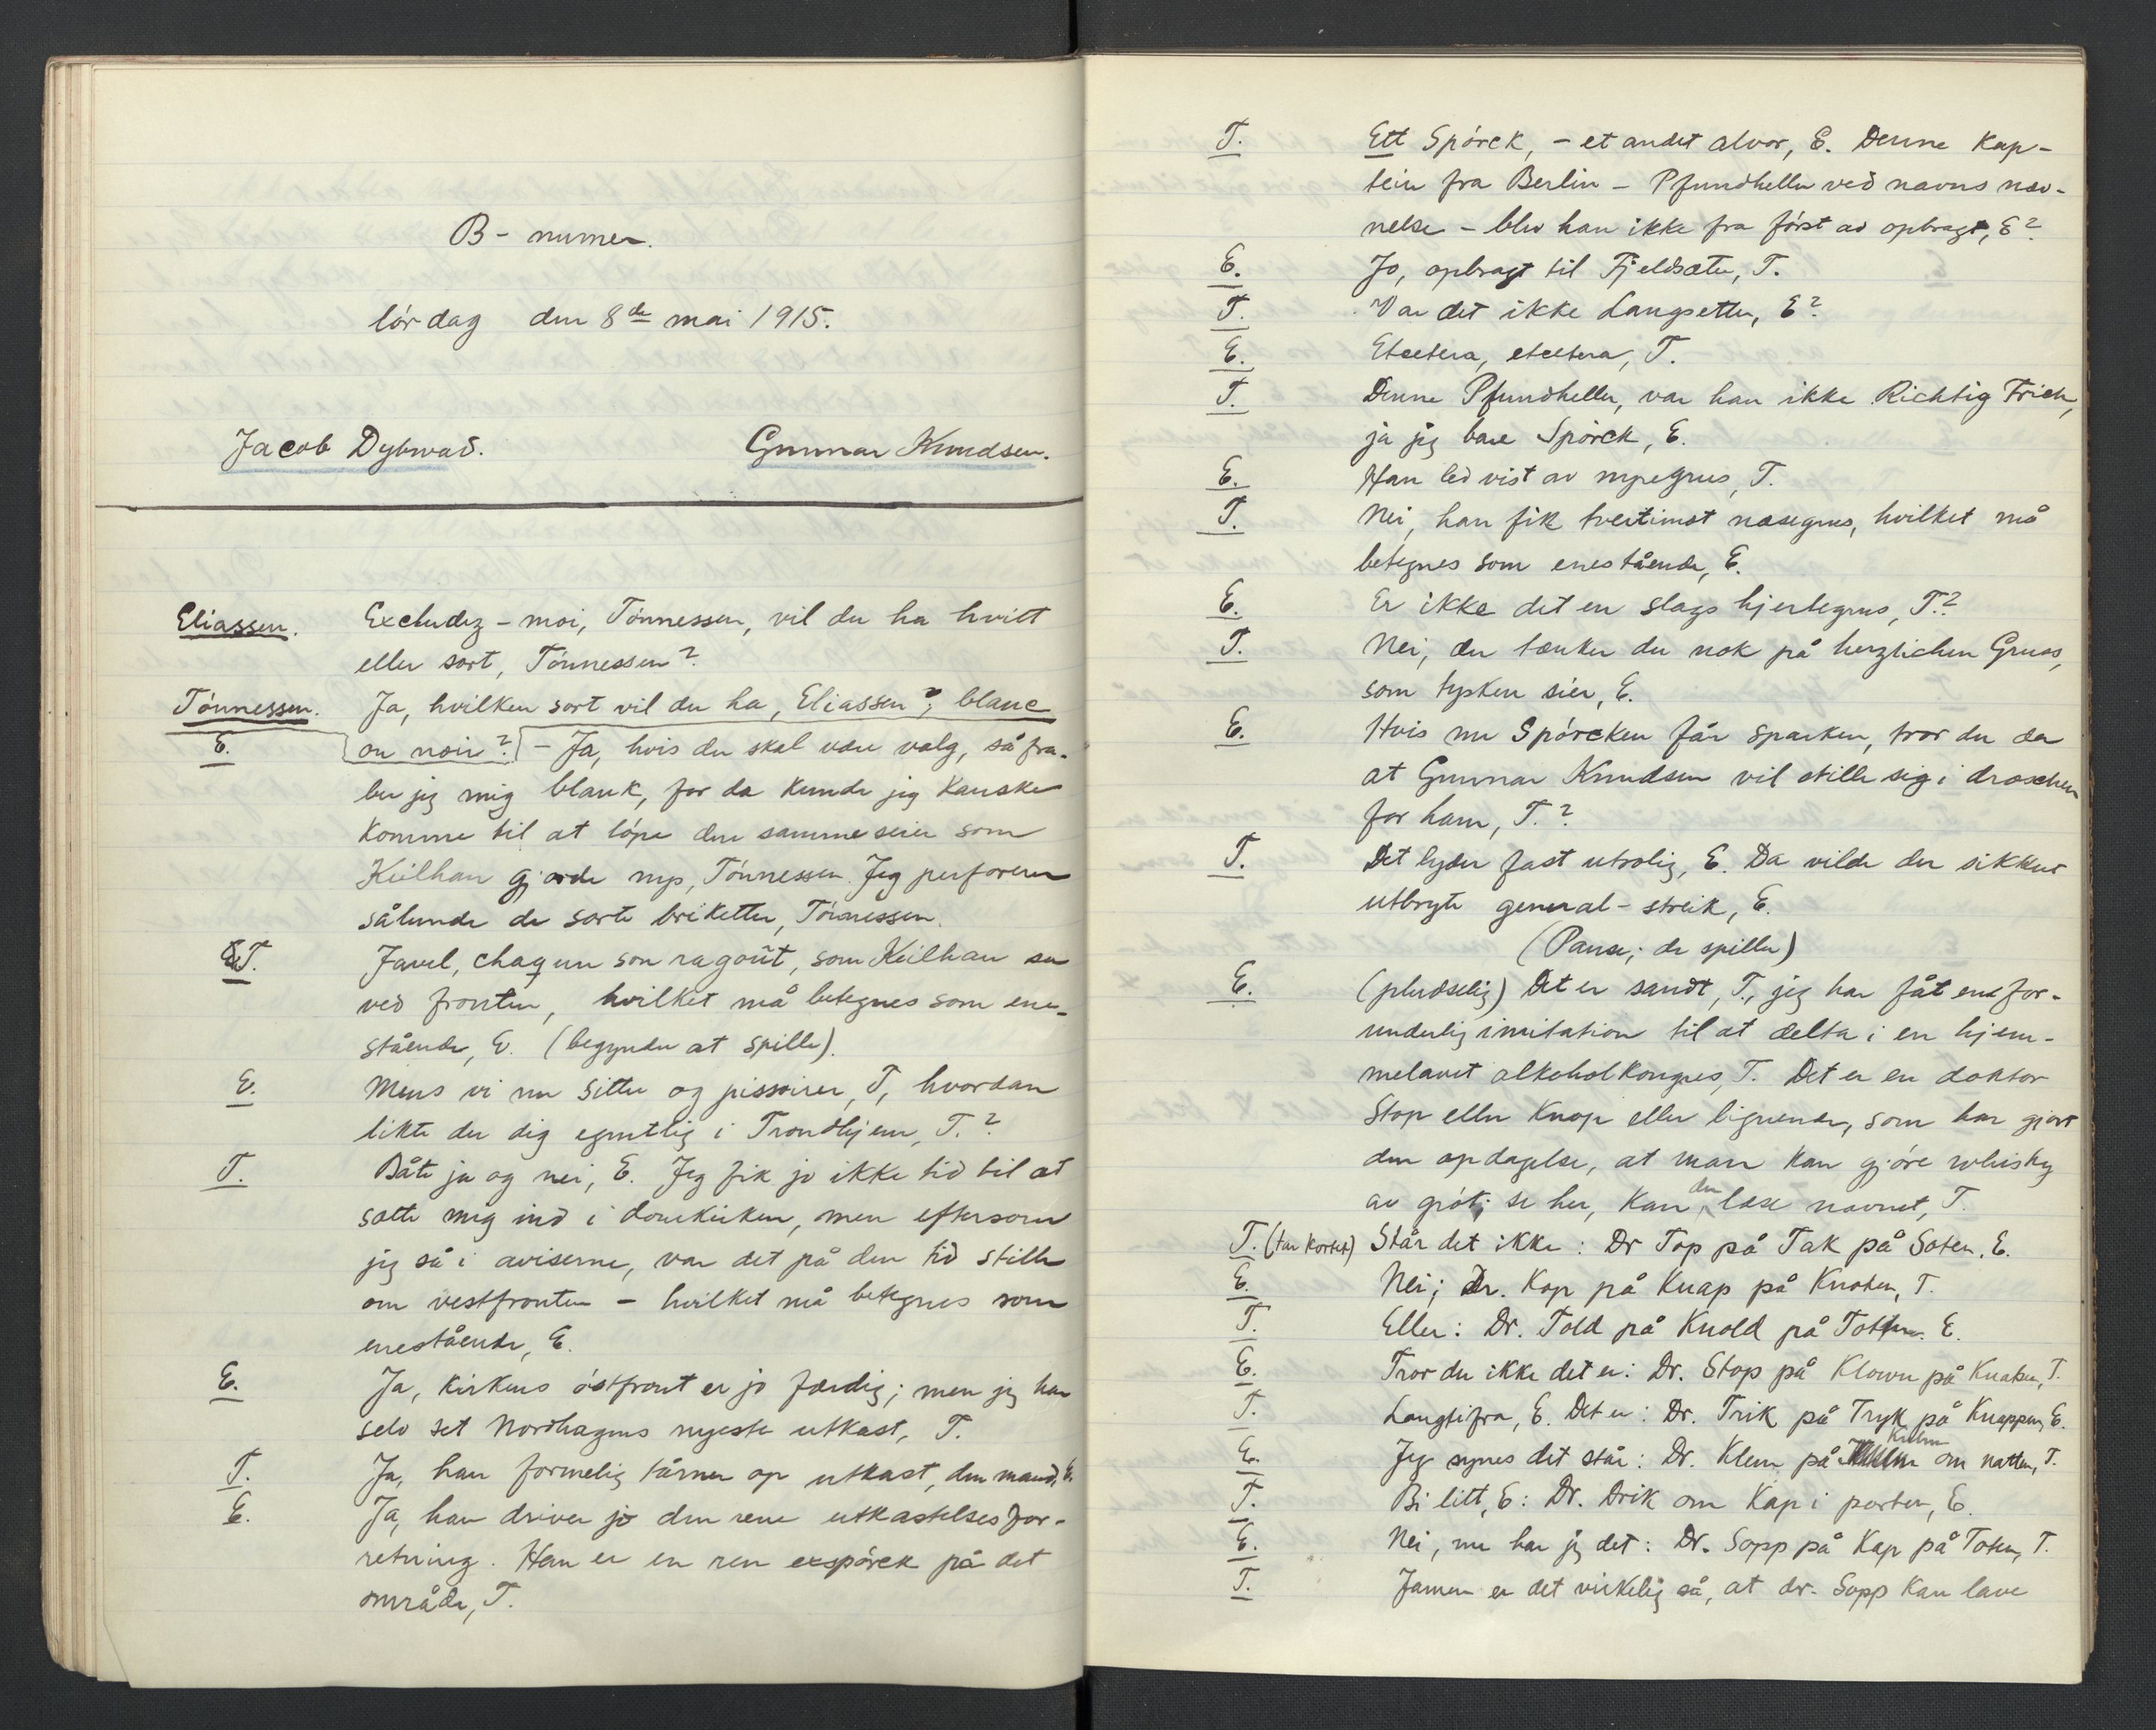 B- numer.
lördag den 8de mai 1915.
Jacob Dybwad. Gunnar Knudsen.
Eliassen. Excludez-moi, Tönnessen, vil du ha hvitt
eller sort, Tönnessen?
Tönnessen. Ja, hvilken sort vil du ha, Eliassen?; blanc
E. ou noir? - Ja, hvis du skal være valg, så fra-
ber jeg mig blank, for da kunde jeg kanske
komme til at löpe den samme seier som
Keilhau gjorde nys, Tönnessen. Jeg perforerer
således de sorte briketter, Tönnessen.
T. Javel, chaqun son ragoût, som Keilhau sa
ved fronten, hvilket må betegnes som ene-
stående, E. (begynder at spille).
E. Mens vi nu sitter og pissoirer, T, hvordan
likte du dig egentlig i Trondhjem, T.?
T. Båte ja og nei, E. Jeg fik jo ikke tid til at
sætte mig ind i domkirken, men eftersom
jeg så i aviserne, var det på den tid stille
om vestfronten - hvilket må betegnes som
enestående, E.
E. Ja, kirkens östfront er jo færdig; men jeg har
selv set Nordhagens nyeste utkast, T.
T. Ja, han formelig tårner op utkast, den mand, E.
E. Ja, han driver jo den rene utkastelsesfor-
retning. Han er en ren expörck på det
område, T.
T. Ett Spörck, - et andet alvor, E. Denne kap-
tein fra Berlin - Pfundheller ved navns næv-
nelse - blev han ikke fra först av opbragt, E?
E. Jo, opbragt til Fjeldsæter, T.
T. Var det ikke Langsetter, E?
E. Etcetera, etcetera, T.
T. Denne Pfundheller, var han ikke Richtig Frisch,
ja jeg bare Spörck, E.
E. Han led vist av nyregrus, T.
T. Nei, han fik tvertimot næsegrus, hvilket må
betegnes som enestående, E.
E. Er ikke det en slags hjertegrus, T.?
T. Nei, du tænker du nok på herzlichen Gruss,
som tysken sier, E.
E. Hvis nu Spörcken får sparken, tror du da
at Gunnar Knudsen vil stille sig i droschen
for ham, T.?
T. Det lyder fast utrolig, E. Da vilde der sikkert
utbryte general-streik, E.
(Pause; de spiller)
E. (pludselig) Det er sandt, T., jeg har fåt en for-
underlig imitation til at delta i en hjem-
melavet alkoholkongres, T. Det er en doktor
Stop eller Knop eller lignende, som har gjort
den opdagelse, at man kan gjöre whisky
av gröt; se her, kan du læse navnet, T.
T. (tar kortet) Står det ikke: Dr Top på Tak på Soten, E.
E. Nei; Dr. Kop på Knap på Knoten, T.
T. Eller: Dr. Told på Knold på Totten. E.
E. Tror du ikke det er: Dr. Stop på Klown på Knoten, T.
T. Langtifra, E. Det er: Dr. Trik på Tryk på Knappen, E.
E. Jeg synes det står: Dr. Klem på Kulm om natten, T.
T. Bi litt, E: Dr. Drik om Kap i porten, E.
E. Nei, nu har jeg det: Dr. Sopp på Kap på Toten, T.
T. Jamen er det virkelig så, at dr. Sopp kan lave